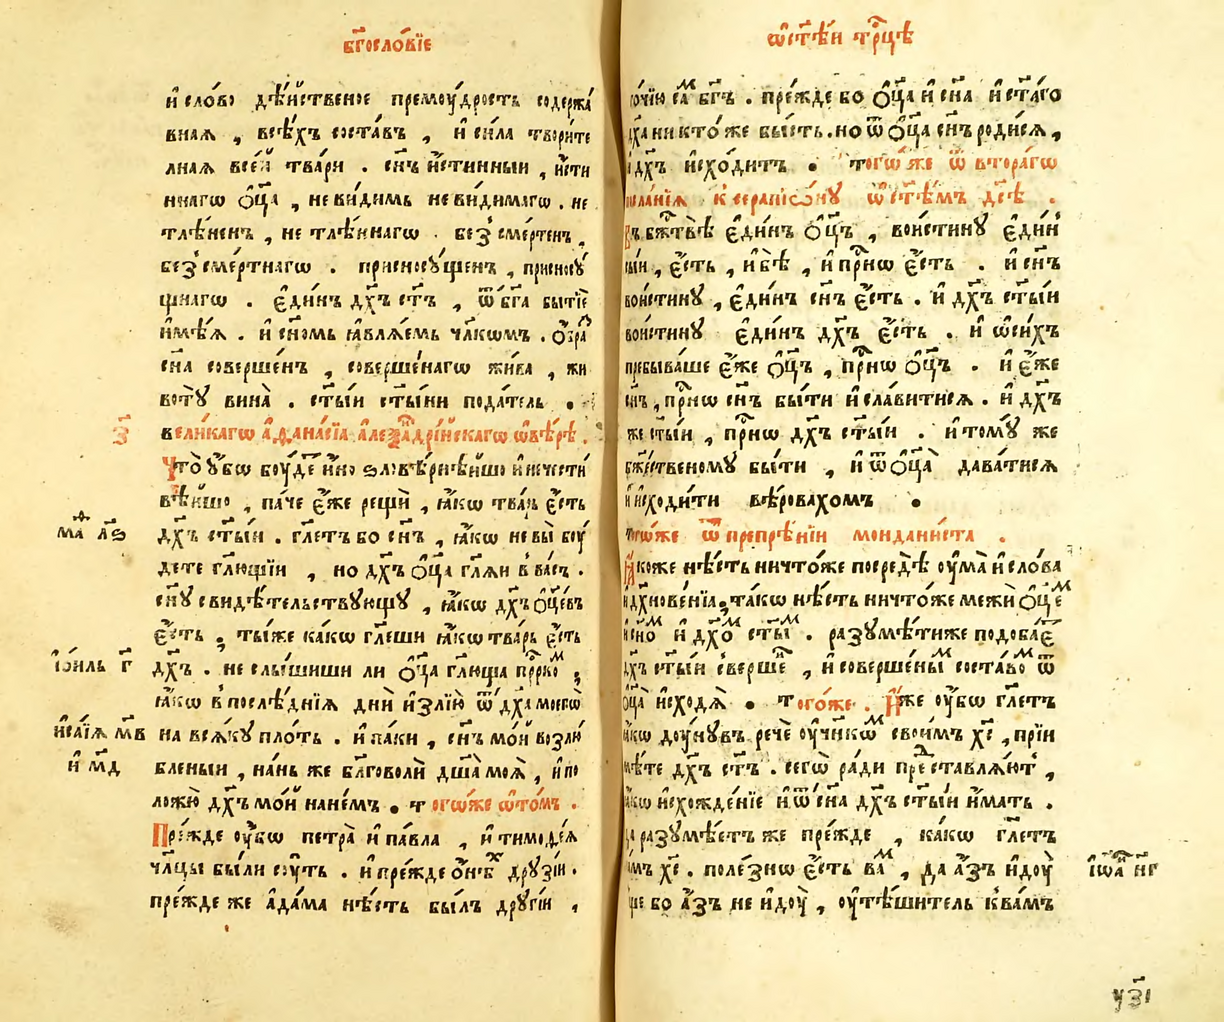 бг҃ослѡ́вїе
и҆ сло́во дѣ́йственое премоу́дрость содержа́
вная , всѣ́хъ соста́въ , и҆ си́ла твори́те
лная всеѧ̀ тва́ри . сн҃ъ и҆́стинныи , и҆́сти
ннагѡ ѻц҃а , неви́димь неви́димагѡ . не
тлѣ́ненъ , не тлѣ́ннагѡ . без̾сме́ртенъ ,
без̾сме́ртнагѡ . присносу́щенъ , присносу́
щнагѡ . є҆ди́нъ дх҃ъ ст҃ъ , ѿ бг҃а бытїѐ
и҆мѣ́ѧ . и҆ сн҃омь ꙗ҆вля́емь чл҃комъ . ѻ҆́браꙁ
сн҃а соверше́нъ , соверше́нагѡ жи́ва , жи
воту̀ вина̀ . ст҃ы́и ст҃ы́ни податель .
вели́кагѡ а҆ѳана́сїа а҆леѯа҆ндрі́йскагѡ ѡ҆вѣ́рѣ .
ꙁ҃
Что̀ у҆́бѡ боу́детъ и҆но ꙁловѣ́рнѣйшо и҆нечести́
вѣйшо , па́че є҆́же рещѝ , ꙗ҆́кѡ тва́рь є҆́сть
дх҃ъ ст҃ы́и . гл҃етъ бо сн҃ъ , ꙗ҆́кѡ не вы̀ боу́
мѳ҃а л҃ѕ
дете гл҃ющїи , но дх҃ъ ѻц҃а гл҃ѧи в ва́съ .
сн҃у свидѣ́тельствующу , ꙗ҆́кѡ дх҃ъ ѻ҆ц҃евъ
є҆́сть , ты́же ка́кѡ гл҃еши ꙗ҆́кѡ тва́рь є҆́сть
дх҃ъ . не слы́шиши ли ѻц҃а гл҃юща прⷪ҇рко́ⷨ ,
і҆ѻи́ль г҃
ꙗ҆́кѡ в послѣ́днїѧ днѝ и҆злїю̀ ѿ дх҃а моегѡ̀
на всѧ́ку пло́ть . и҆ па́ки , сн҃ъ мо́и возлю́
и҆са́їѧ м҃в
бленыи , нань же бл҃говолѝ дш҃а моѧ̀ , и҆ по
и҆ м҃д
ложю̀ дх҃ъ мо́й нане́мъ . тогѡ́же ѡ҆то́мъ .
Пре́жде оу҆́бѡ петра̀ и҆ па́вла , и҆ тимоѳе́ѧ
чл҃цы бы́ли су́ть . и҆ пре́жде ѻ҆нѣⷯ дру́зїи .
пре́жде же а҆да́ма нѣ́сть бы́лъ другі́и ,
ѡ҆ ст҃ѣ́и трⷪ҇цѣ
то́чїю са́ⷨ бг҃ъ . пре́жде бо ѻц҃а и҆ сн҃а и҆ ст҃а́го
дх҃а ни кто́же бы́сть . но ѿ ѻц҃а сн҃ъ роди́сѧ ,
и҆ дх҃ъ и҆схо́дитъ . тогѡ́же ѿ втора́гѡ
посла́нїѧ к серапїѡ́ну ѡ҆ ст҃ѣ́мъ дс҃ѣ .
Въ бж҃твѣ̀ є҆ди́нъ ѻц҃ъ , вои́стину є҆ди́нъ
сы́и , є҆́сть , и҆ бѣ̀ , и҆ прⷭ҇нѡ є҆́сть . и҆ сн҃ъ
вои́стину , є҆ди́нъ сн҃ъ є҆́сть . и҆ дх҃ъ ст҃ы́и
вои́стину є҆ди́нъ дх҃ъ є҆́сть . и҆ ѡ҆ си́хъ
пребыва́ше є҆́же ѻц҃ъ , прⷭ҇нѡ ѻц҃ъ . и҆ є҆́же
сн҃ъ , прⷭ҇нѡ сн҃ъ бы́ти и҆ сла́витисѧ . и҆ дх҃ъ
же ст҃ы́и , прⷭ҇нѡ дх҃ъ ст҃ы́и . и҆ тому́ же
бж҃е́ственому бы́ти , и҆ ѿ ѻц҃а̀ дава́тисѧ
и҆ и҆сходи́ти вѣ́ровахомъ .
тогѡ́же ѿ препрѣ́нїи мондани́ста .
Ꙗ҆́коже нѣ́сть ничто́же посредѣ̀ оу҆ма̀ и҆ сло́ва
и҆ дх҃нове́нїа , та́кѡ нѣ́сть ничто́же межѝ ѻц҃еⷨ
и҆ сн҃оⷨ и҆ дх҃оⷨ ст҃ы́ⷨ . разумѣ́тиже подоба́є҆
дх҃ъ ст҃ы́и сверше́ⷩ , и҆ соверше́ныⷨ соста́воⷨ ѿ
ѻц҃а̀ и҆сходѧ̀ . того́же . Ꙗ҆́же оу҆́бѡ гл҃етъ
ꙗ҆́кѡ доу́нувъ речѐ оу҆чн҃кѡⷨ свои́мъ хс҃ , прїи
мѣ́те дх҃ъ ст҃ъ . сегѡ̀ ра́ди преⷣставля́ют̾ ,
ꙗ҆́кѡ и҆схожде́нїе и҆ ѿ сн҃а дх҃ъ ст҃ы́и и҆́мать .
да разумѣ́етъ же пре́жде , ка́кѡ гл҃етъ
и҆́мъ хс҃ . поле́знѡ є҆́сть ва́ⷨ , да а҆́зъ и҆доу̀
і҆ѡⷩ҇а н҃г
а҆ще бо а҆́зъ не и҆доу̀ , оу҆тѣ́шитель к ва́мъ
у҃ꙁі